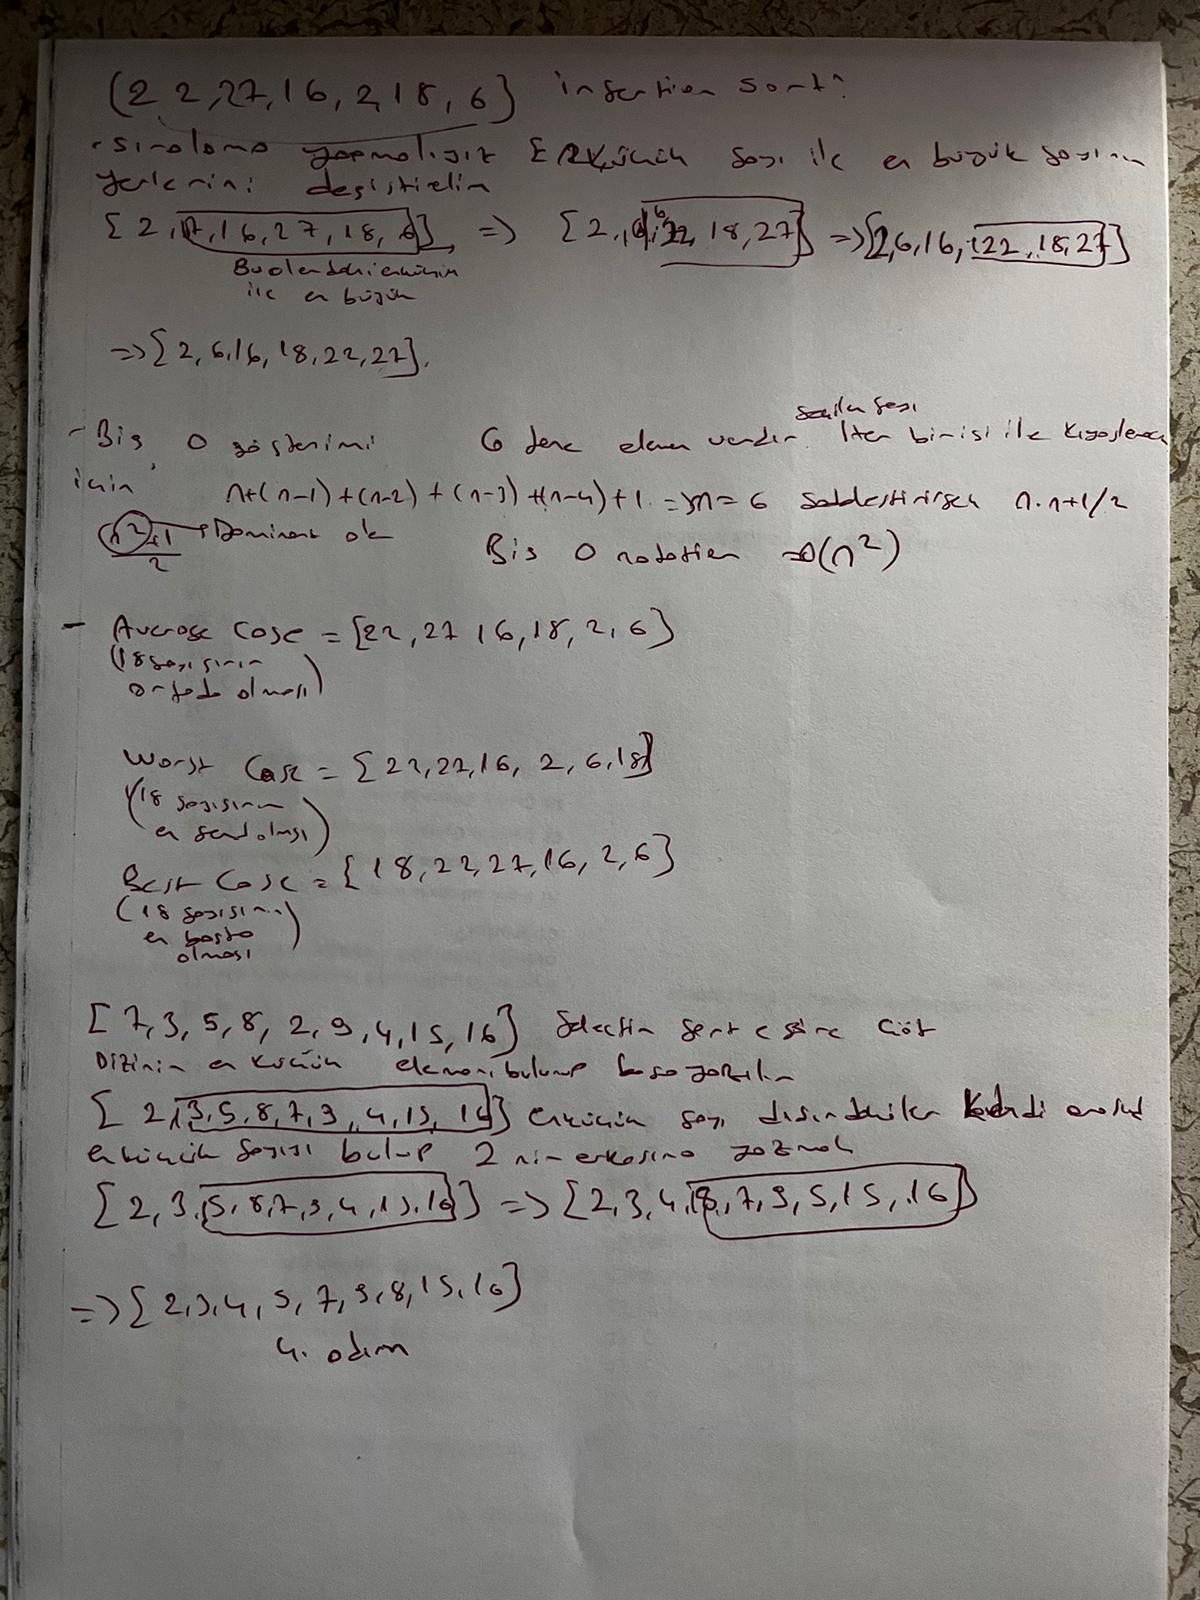 (22,27,16,2,18,6} insertion sort?
- sıralama yapmalıyız En küçük sayı ile en büyük sayının
yerlerini değiştirelim
{2, 16,27,18,6} => {2, 22, 18,27} => {2,6,16, 22,18,27}
Bu en küçük
ile en büyük
=> {2,6,16,18,22,27}.
seçilen sayı
- Big O gösterimi 6 tane eleman vardır. birisi ile kıyaslanacak
için n+(n-1)+(n-2)+(n-3)+(n-4)+1 => n=6 n.n+1/2
n²+1 → Dominant
2
Big O notation → O(n²)
- Average Case = [22,27 16,18,2,6}
(18 sayısının
ortada olması)
Worst Case = {22,27,16,2,6,18}
(18 sayısının
en olması)
Best Case = { 18,22,27,16,2,6}
(18 sayısının
en başta
olması)
[7,3,5,8,2,9,4,15,16} Selection Sort göre
Dizinin en küçük elemanı bulunup başa yazılır
{2,3,5,8,7,9,4,15,16} en küçük sayı
en küçük sayısı bulup 2 nin arkasına yazmak
{2,3,5,8,7,9,4,15,16} => {2,3,4,8,7,9,5,15,16}
=> {2,3,4,5,7,9,8,15,16}
4. adım